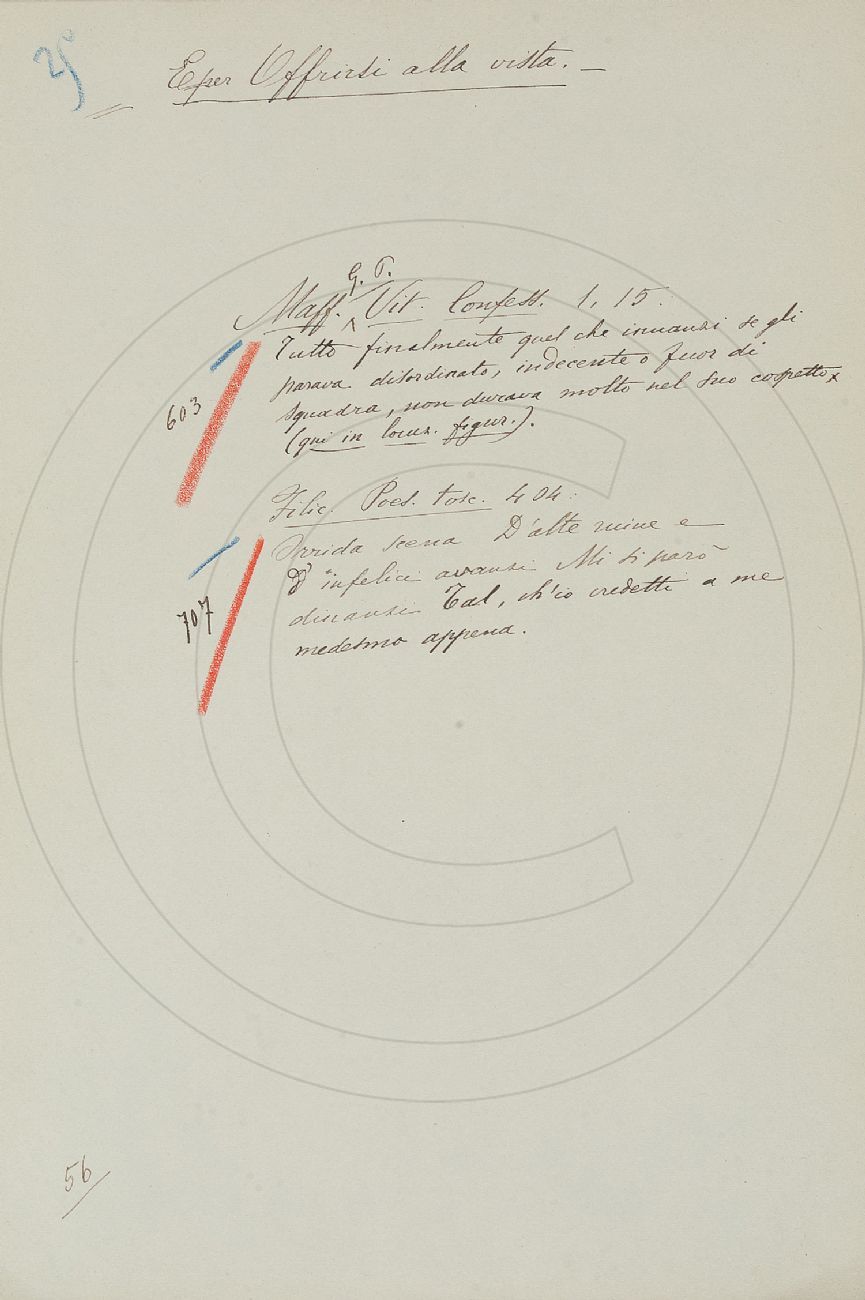 25
E per Offrirsi alla vista. —
G. P.
Maff. Vit. Confess. 1, 15:
Tutto finalmente quel che innanzi se gli
parava disordinato, indecente o fuor di
squadra, non durava molto nel suo cospetto
(qui in locuz. figur.).
603
Filic. Poes. tosc. 404:
Orrida scena D'alte ruine e
D'infelici avanzi Mi si parò
dinanzi Tal, ch'io credetti a me
medesmo appena.
707
56